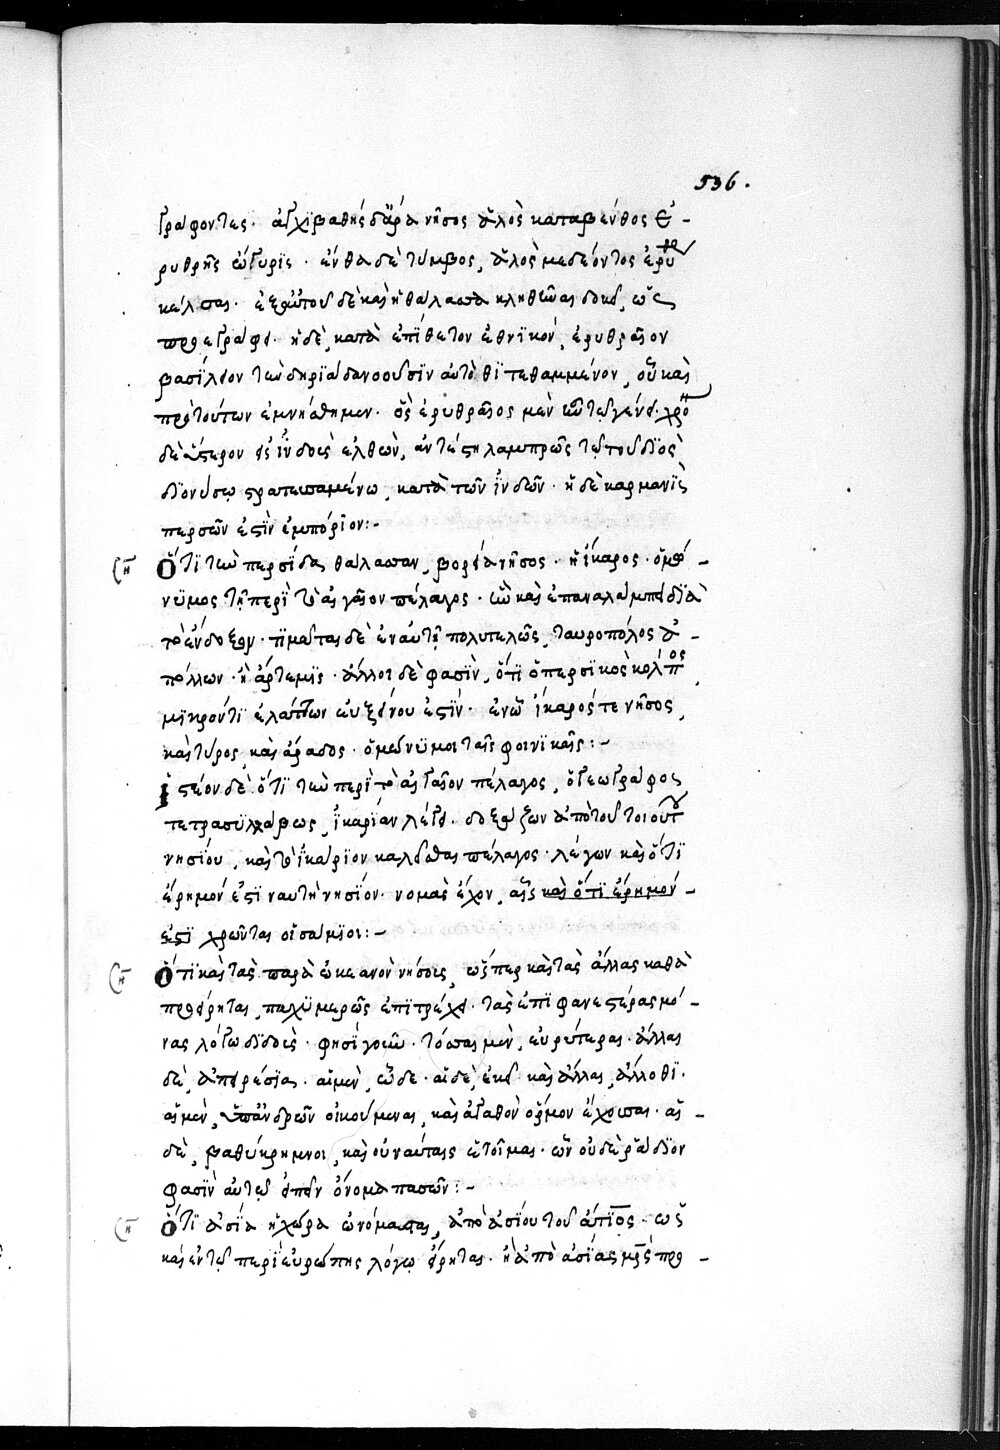 536.
γράφοντες· ἀγχιβαθής δ' ἄρα νῆσος ἁλὸς καταβένθος ἐ-
ρυθρῆς ὤγυρις· ἔνθα δὲ τύμβος, ἁλὸς μεδέοντος ἐρυθρ
κέλσαι· ἐξ αὐτοῦ δὲ καὶ ἡ θάλασσα κληθῆναι δοκεῖ, ὡς
προεγράφη· ἢ δὲ κατὰ ἐπίθετον ἐθνικόν, ἐρυθραῖον
βασίλειον τὸν δηριάδαν οὖσιν αὐτόθι τεθαμμένον, οὗ καὶ
πρὸ τούτων ἐμνήσθημεν· ὃς ἐρυθραῖος μὲν ἦν τῷ γένει· χρό
δὲ ὕστερον εἰς ἰνδοὺς ἐλθὼν, ἀντέστη λαμπρῶς τῷ τοῦ διὸς
διονύσῳ στρατευσαμένῳ, κατὰ τῶν ἰνδῶν· ἡ δὲ καρμανὶς
περσῶν ἐστὶν ἐμπόριον:-
Ὅτι τῶν περσίδα θάλασσαν, βορεία νῆσος· ἡ ἴκαρος· ὁμω-
νύμος τῇ περὶ τὸ αἰγαῖον πέλαγος· ᾧ καὶ ἐπαναλάμπει διὰ
τὸ ἔνδοξον· τιμᾶται δὲ ἐν αὐτῇ πολυτελῶς, ταυροπόλος ἀ-
πόλλων· ἢ ἄρτεμις· ἄλλοι δὲ φασὶν, ὅτι ὁ περσικὸς κόλπος
μικρόν τι ἐλάττων εὐξείνου ἐστίν· ἐν ᾧ ἴκαρός τε νῆσος,
καὶ τύρος, καὶ ἄραδος· ὁμώνυμοι ταῖς φοινίκαις:-
Ἰστέον δὲ ὅτι τῶν περὶ τὸ αἰγαῖον πέλαγος, ὁ γεωγράφος
τετρασυλλάβως, ἰκαρίαν λέγει· δοξάζων ἀπὸ τοῦ τοιούτου
νησίου, καὶ τὸ ἰκάριον καλεῖσθαι πέλαγος· λέγων καὶ ὅτι
ἔρημόν ἐστι ναυτὴ νησίον· νομὰς ἔχον, αἷς καὶ ὅτι ἔρημόν-
ἐστι χρῶνται οἱ σάμιοι:-
Ὅτι καὶ τὰς παρὰ ὠκεανὸν νήσους, ὥσπερ καὶ τὰς ἄλλας καθὰ
προείρηται, παχυμερῶς ἐπιτρέχει· τὰς ἐπιφανεστέρας μό-
νας λόγῳ διδοὺς· φησὶ γοῦν· τόσσαι μὲν, εὐρύτεραι· ἄλλαι
δὲ, ἀπειρέσιαι· αἱ μὲν, ὧδε· αἱ δὲ, ἐκεῖ καὶ ἄλλαι, ἄλλοθι·
αἱ μὲν, ὑπ' ἀνδρῶν οἰκούμεναι, καὶ ἀγαθὸν ὅρμον ἔχουσαι· αἱ-
δὲ, βαθύκρημνοι, καὶ οὐ ναύταις ἕτοιμαι· ὧν οὐδὲ ῥάδιον
φασὶν αὐτῷ εἰπεῖν ὄνομα πασῶν:-
Ὅτι ἀσία ἡ χώρα ὠνόμασται, ἀπὸ ἀσίου τοῦ ἄτιος· ὡς
καὶ ἐν τῷ περὶ εὐρώπης λόγῳ εἴρηται· ἢ ἀπὸ ἀσίας μρς προ-